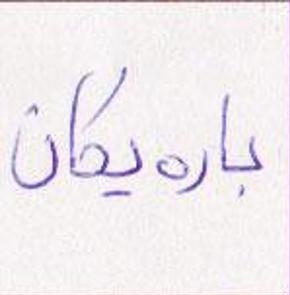 باره‌یکان